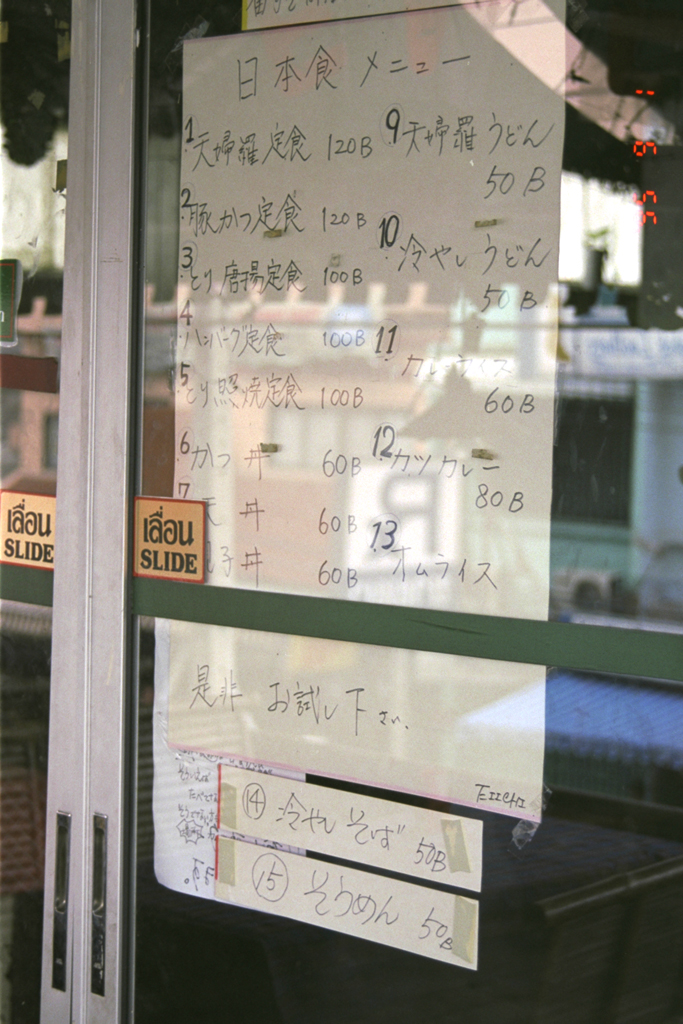 日本食 メニュー
1 天婦羅定食 120B
2 豚かつ定食 120B
3 とり唐揚定食 100B
4 ハンバーグ定食 100B
5 とり照焼定食 100B
6 かつ丼 60B
7 天丼 60B
子丼 60B
9 天婦羅うどん
50B
10 冷やしうどん
50B
11 カレーライス
60B
12 カツカレー
80B
13 オムライス
是非 お試し下さい.
EIICHI
⑭ 冷やしそば 50B
⑮ そうめん 50B
เลื่อน
SLIDE
เลื่อน
SLIDE